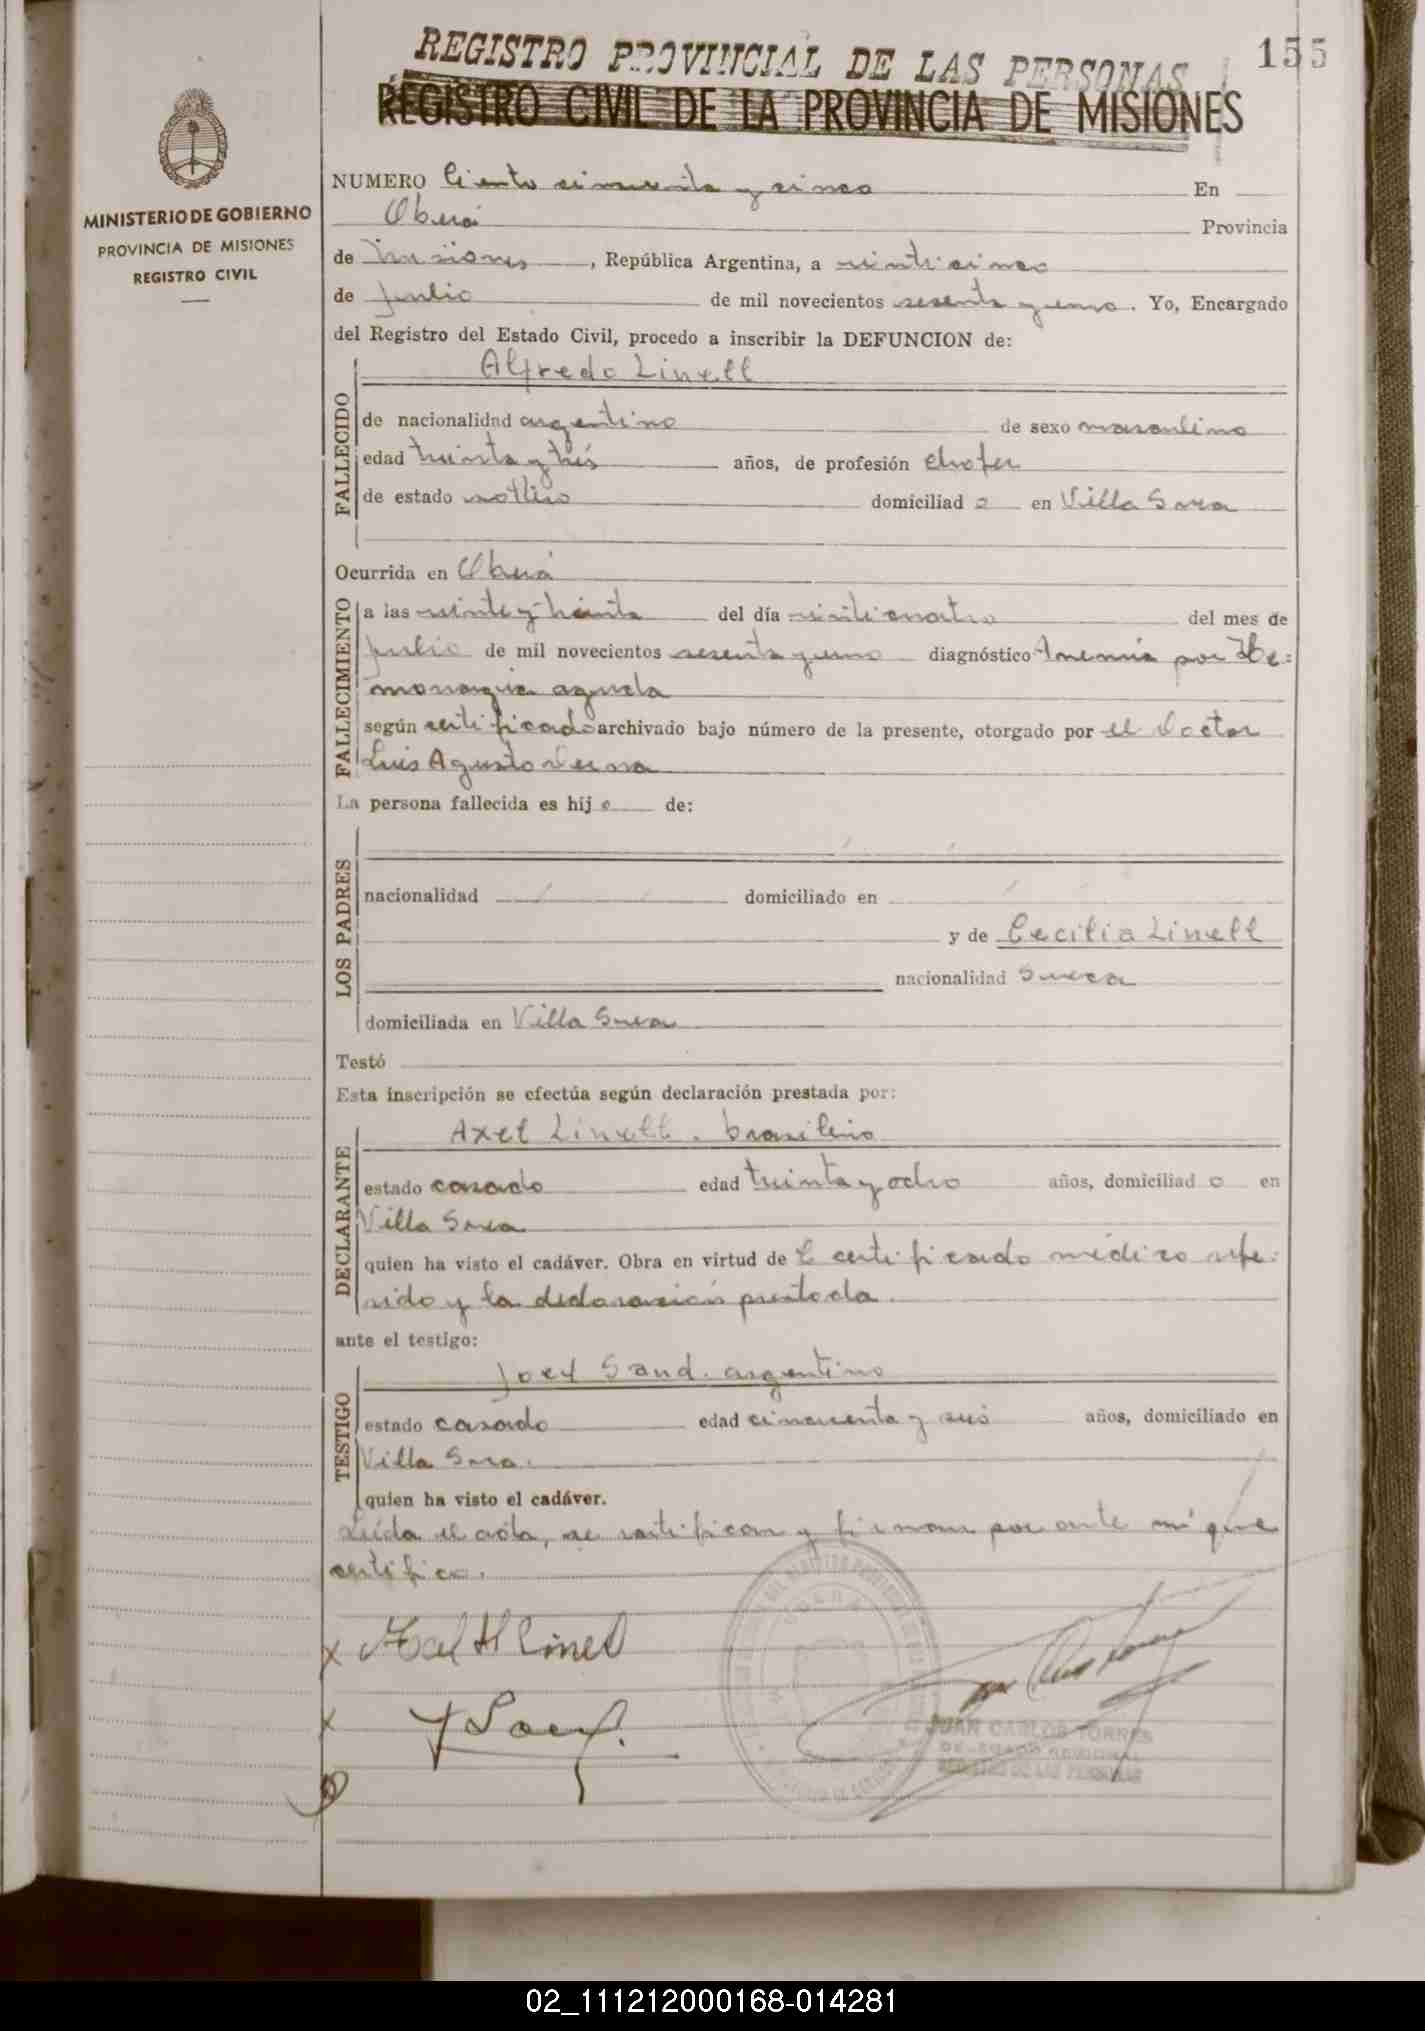 REGISTRO PROVINCIAL DE LAS PERSONAS
155
REGISTRO CIVIL DE LA PROVINCIA DE MISIONES
MINISTERIO DE GOBIERNO
PROVINCIA DE MISIONES
REGISTRO CIVIL
NUMERO Ciento cincuenta y cinco En
Oberá Provincia
de Misiones, República Argentina, a veinticinco
de Julio de mil novecientos sesenta y uno. Yo, Encargado
del Registro del Estado Civil, procedo a inscribir la DEFUNCION de:
Alfredo Linell
FALLECIDO
de nacionalidad argentino de sexo masculino
edad treinta y trés años, de profesión chofer
de estado soltero domiciliad o en Villa Sueca
Ocurrida en Oberá
FALLECIMIENTO
a las veinte y treinta del día veinticuatro del mes de
Julio de mil novecientos sesenta y uno diagnóstico Anemia por He-
morragia aguda
según certificado archivado bajo número de la presente, otorgado por el Doctor
Luis Agusto
La persona fallecida es hij o de:
LOS PADRES
nacionalidad domiciliado en
y de Cecilia Linell
nacionalidad Sueca
domiciliada en Villa Sueca
Testó
Esta inscripción se efectúa según declaración prestada por:
Axel Linell. brasilero
DECLARANTE
estado casado edad treinta y ocho años, domiciliad o en
Villa Sueca
quien ha visto el cadáver. Obra en virtud de l certificado médico refe-
rido y la declaración prestada.
ante el testigo:
Joel Sand. argentino
TESTIGO
estado casado edad cincuenta y seis años, domiciliado en
Villa Sueca.
quien ha visto el cadáver.
Leída el acta, se ratifican y firman por ante mí que
certifico.
JUAN CARLOS TORRES
DELEGADO REGIONAL
REGISTRO DE LAS PERSONAS
02_111212000168-014281